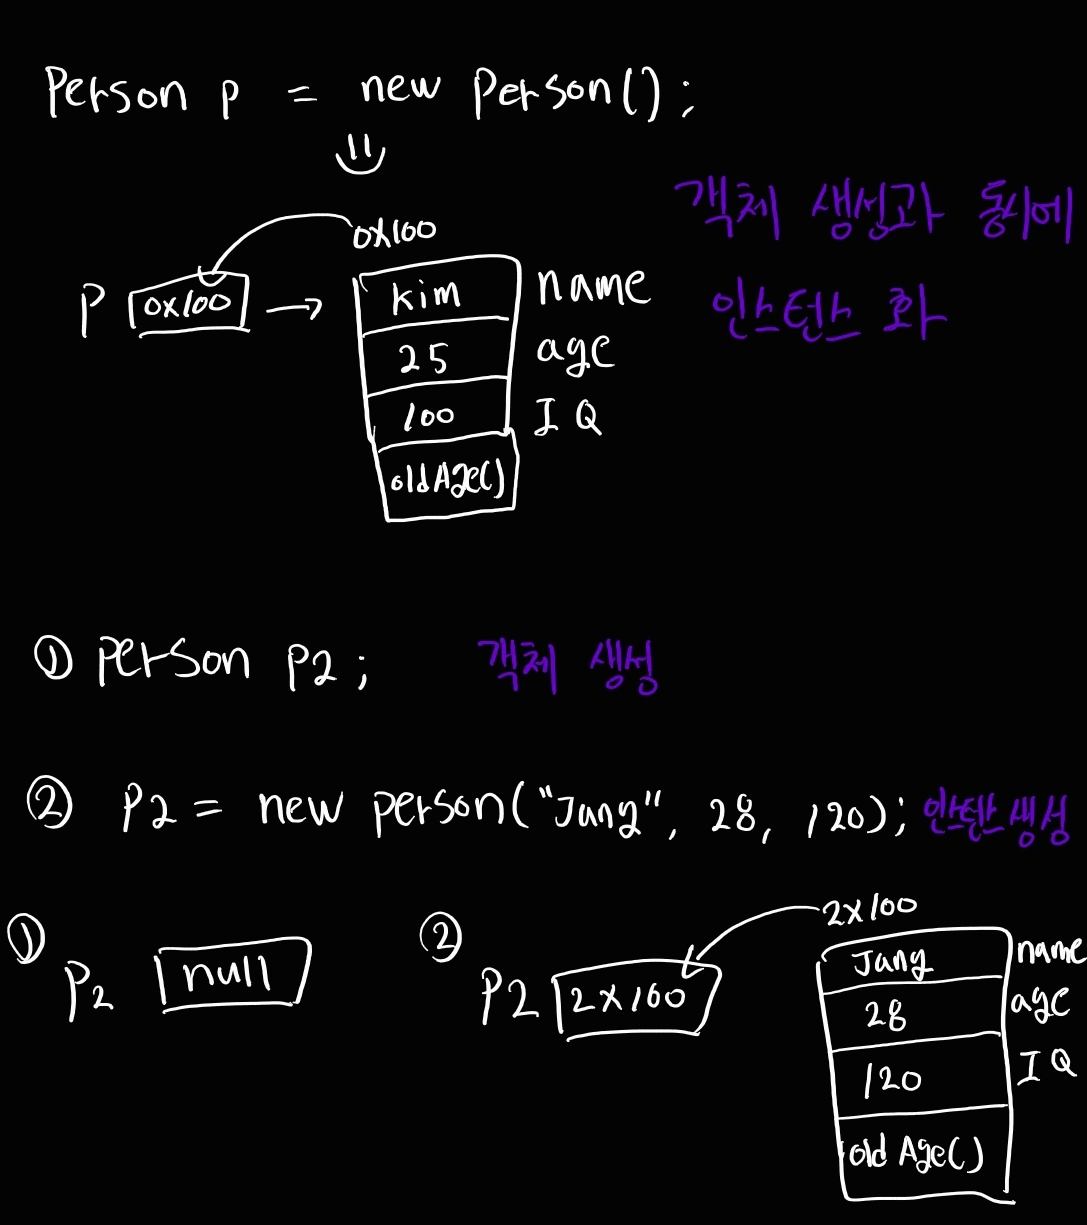 Person p = new Person();
객체 생성과 동시에
인스턴스 화
0x100
P 0x100 → kim name
25 age
100 IQ
oldAge()
① person p2; 객체 생성
② P2 = new person("Jang", 28, 120); 인스턴스 생성
① P2 null
② P2 2x100
2x100
Jang name
28 age
120 IQ
old Age()